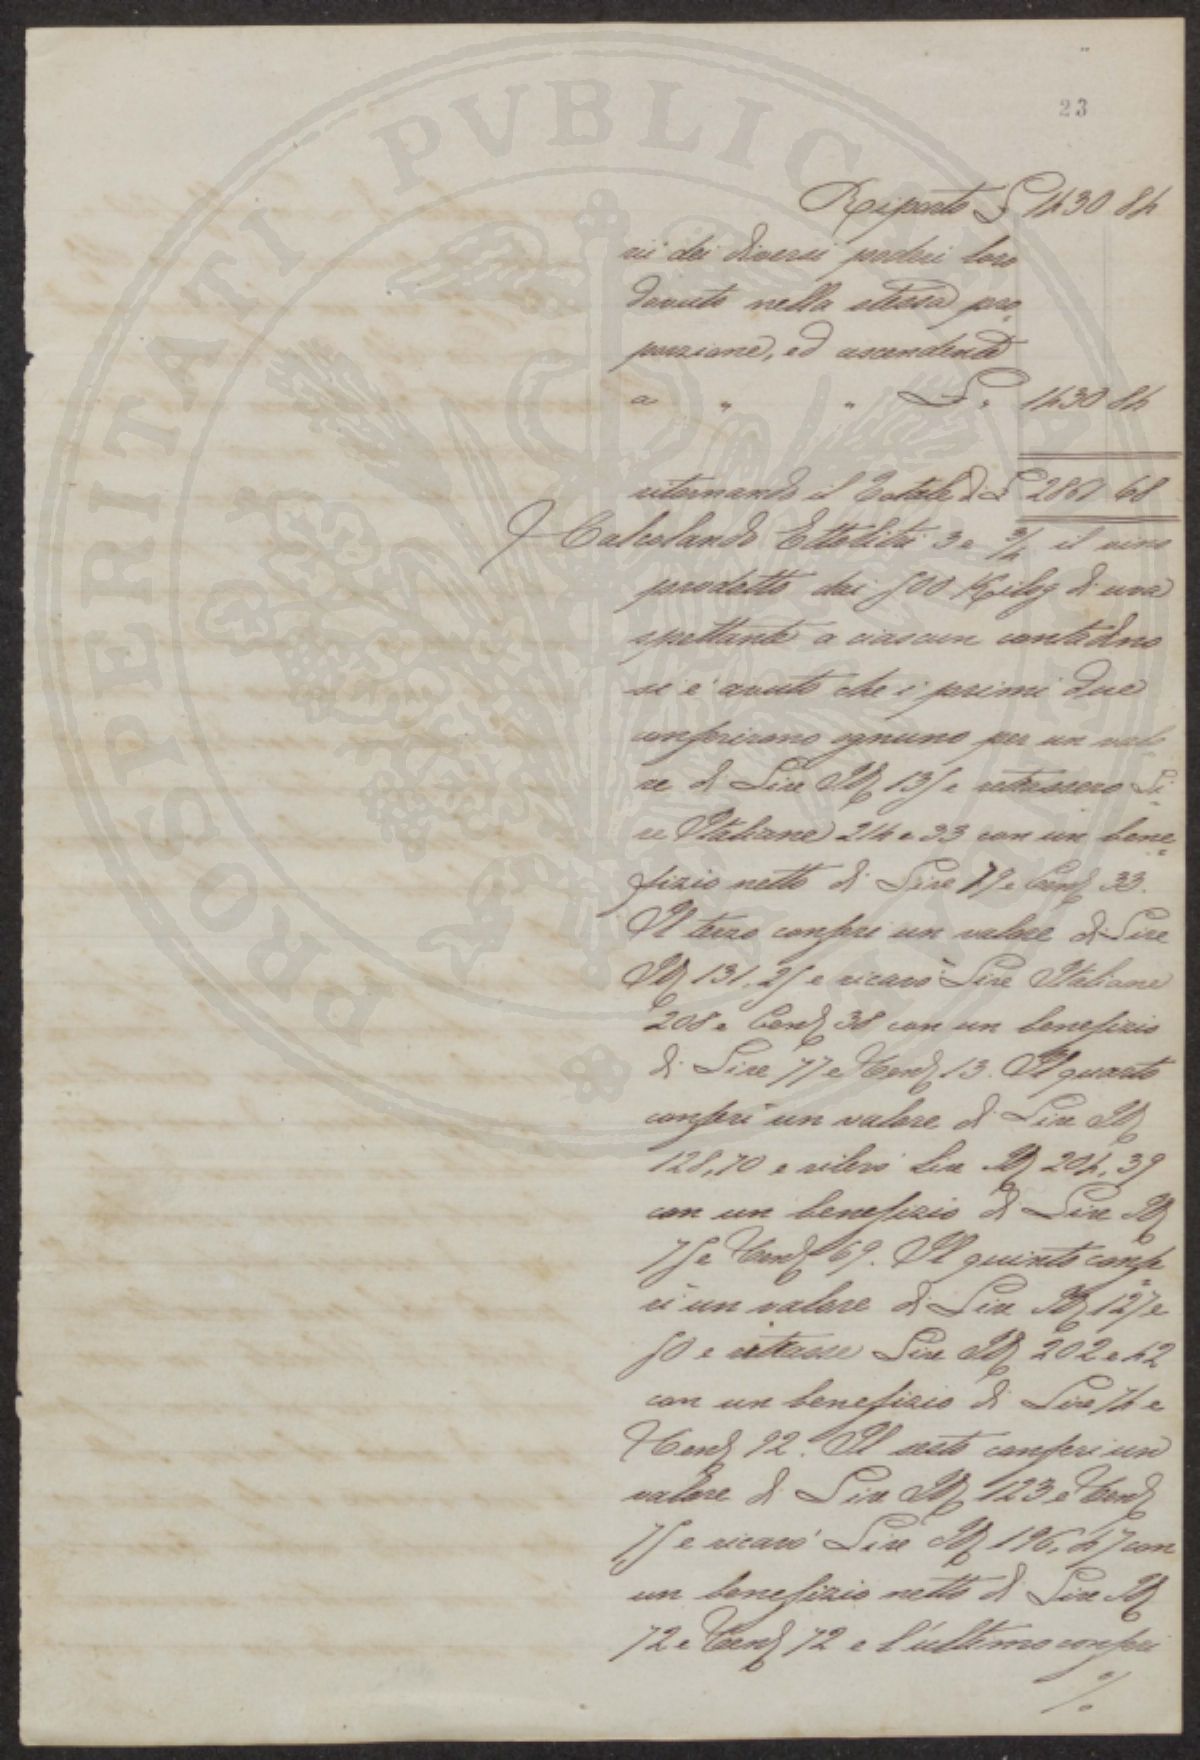 23
Riporto £ 1430 84
rii dei diversi poderi loro
dovuto nella stessa pro
porzione, ed ascendente
a " " £ " 1430 84
ritornando il Totale di £ 2861 68
Calcolando Ettolitri 3 e 3/4 il vino
prodotto dai 500 Kilog di uva
spettante a ciascun contadino
si è avuto che i primi due
conferirono ognuno per un valo
re di Lire It 135 e ritrassero Li
re Italiane 214 e 33 con un bene
fizio netto di Lire 79 e Cent 33.
Il terzo conferì un valore di Lire
It 131,25 e ricavò Lire Italiane
208 e Cent 38 con un benefizio
di Lire 77 e Cent 13. Il quarto
conferì un valore di Lire It
128,70 e rilevò Lire It 204,39
con un benefizio di Lire It
75 e Cent 69. Il quinto confe
rì un valore di Lire It 127 e
50 e ritrasse Lire It 202 e 42
con un benefizio di Lire 74 e
Cent 92. Il sesto conferì un
valore di Lire It 123 e Cent
75 e ricavò Lire It 196,47 con
un benefizio netto di Lire It
72 e Cent 72 e l'ultimo conferì
%
PROSPERITATI PVBLICAE